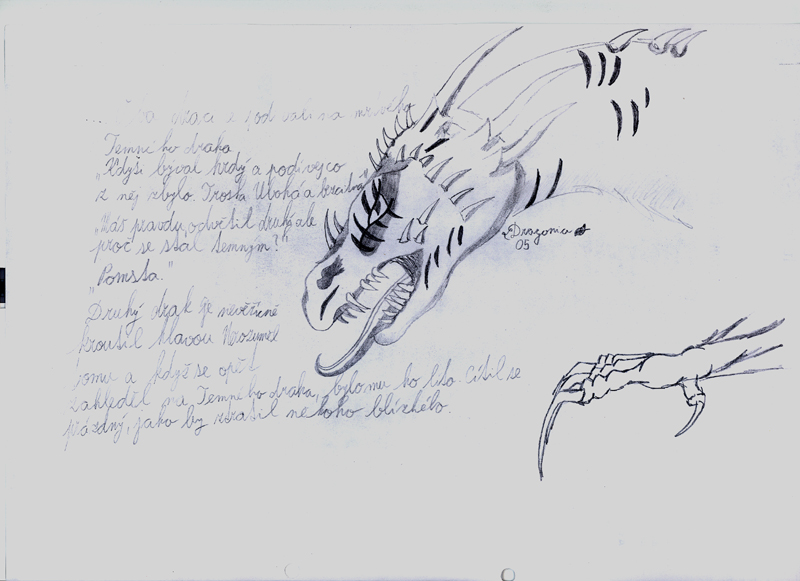 na mrtvého
Temného draka
„Kdysi býval hrdý a podívej co
z něj zbylo. Troska Ubohá a bezcitná“
„Máš pravdu, odvětil druhý ale
proč se stal temným?“
„Pomsta.“
Druhý drak je nevěřícně
kroutil hlavou Nerozuměl
tomu a když se opět
zahleděl na Temného draka, bylo mu ho líto Cítil se
prázdný, jako by ztratil někoho blízkého.
Dragonia
05